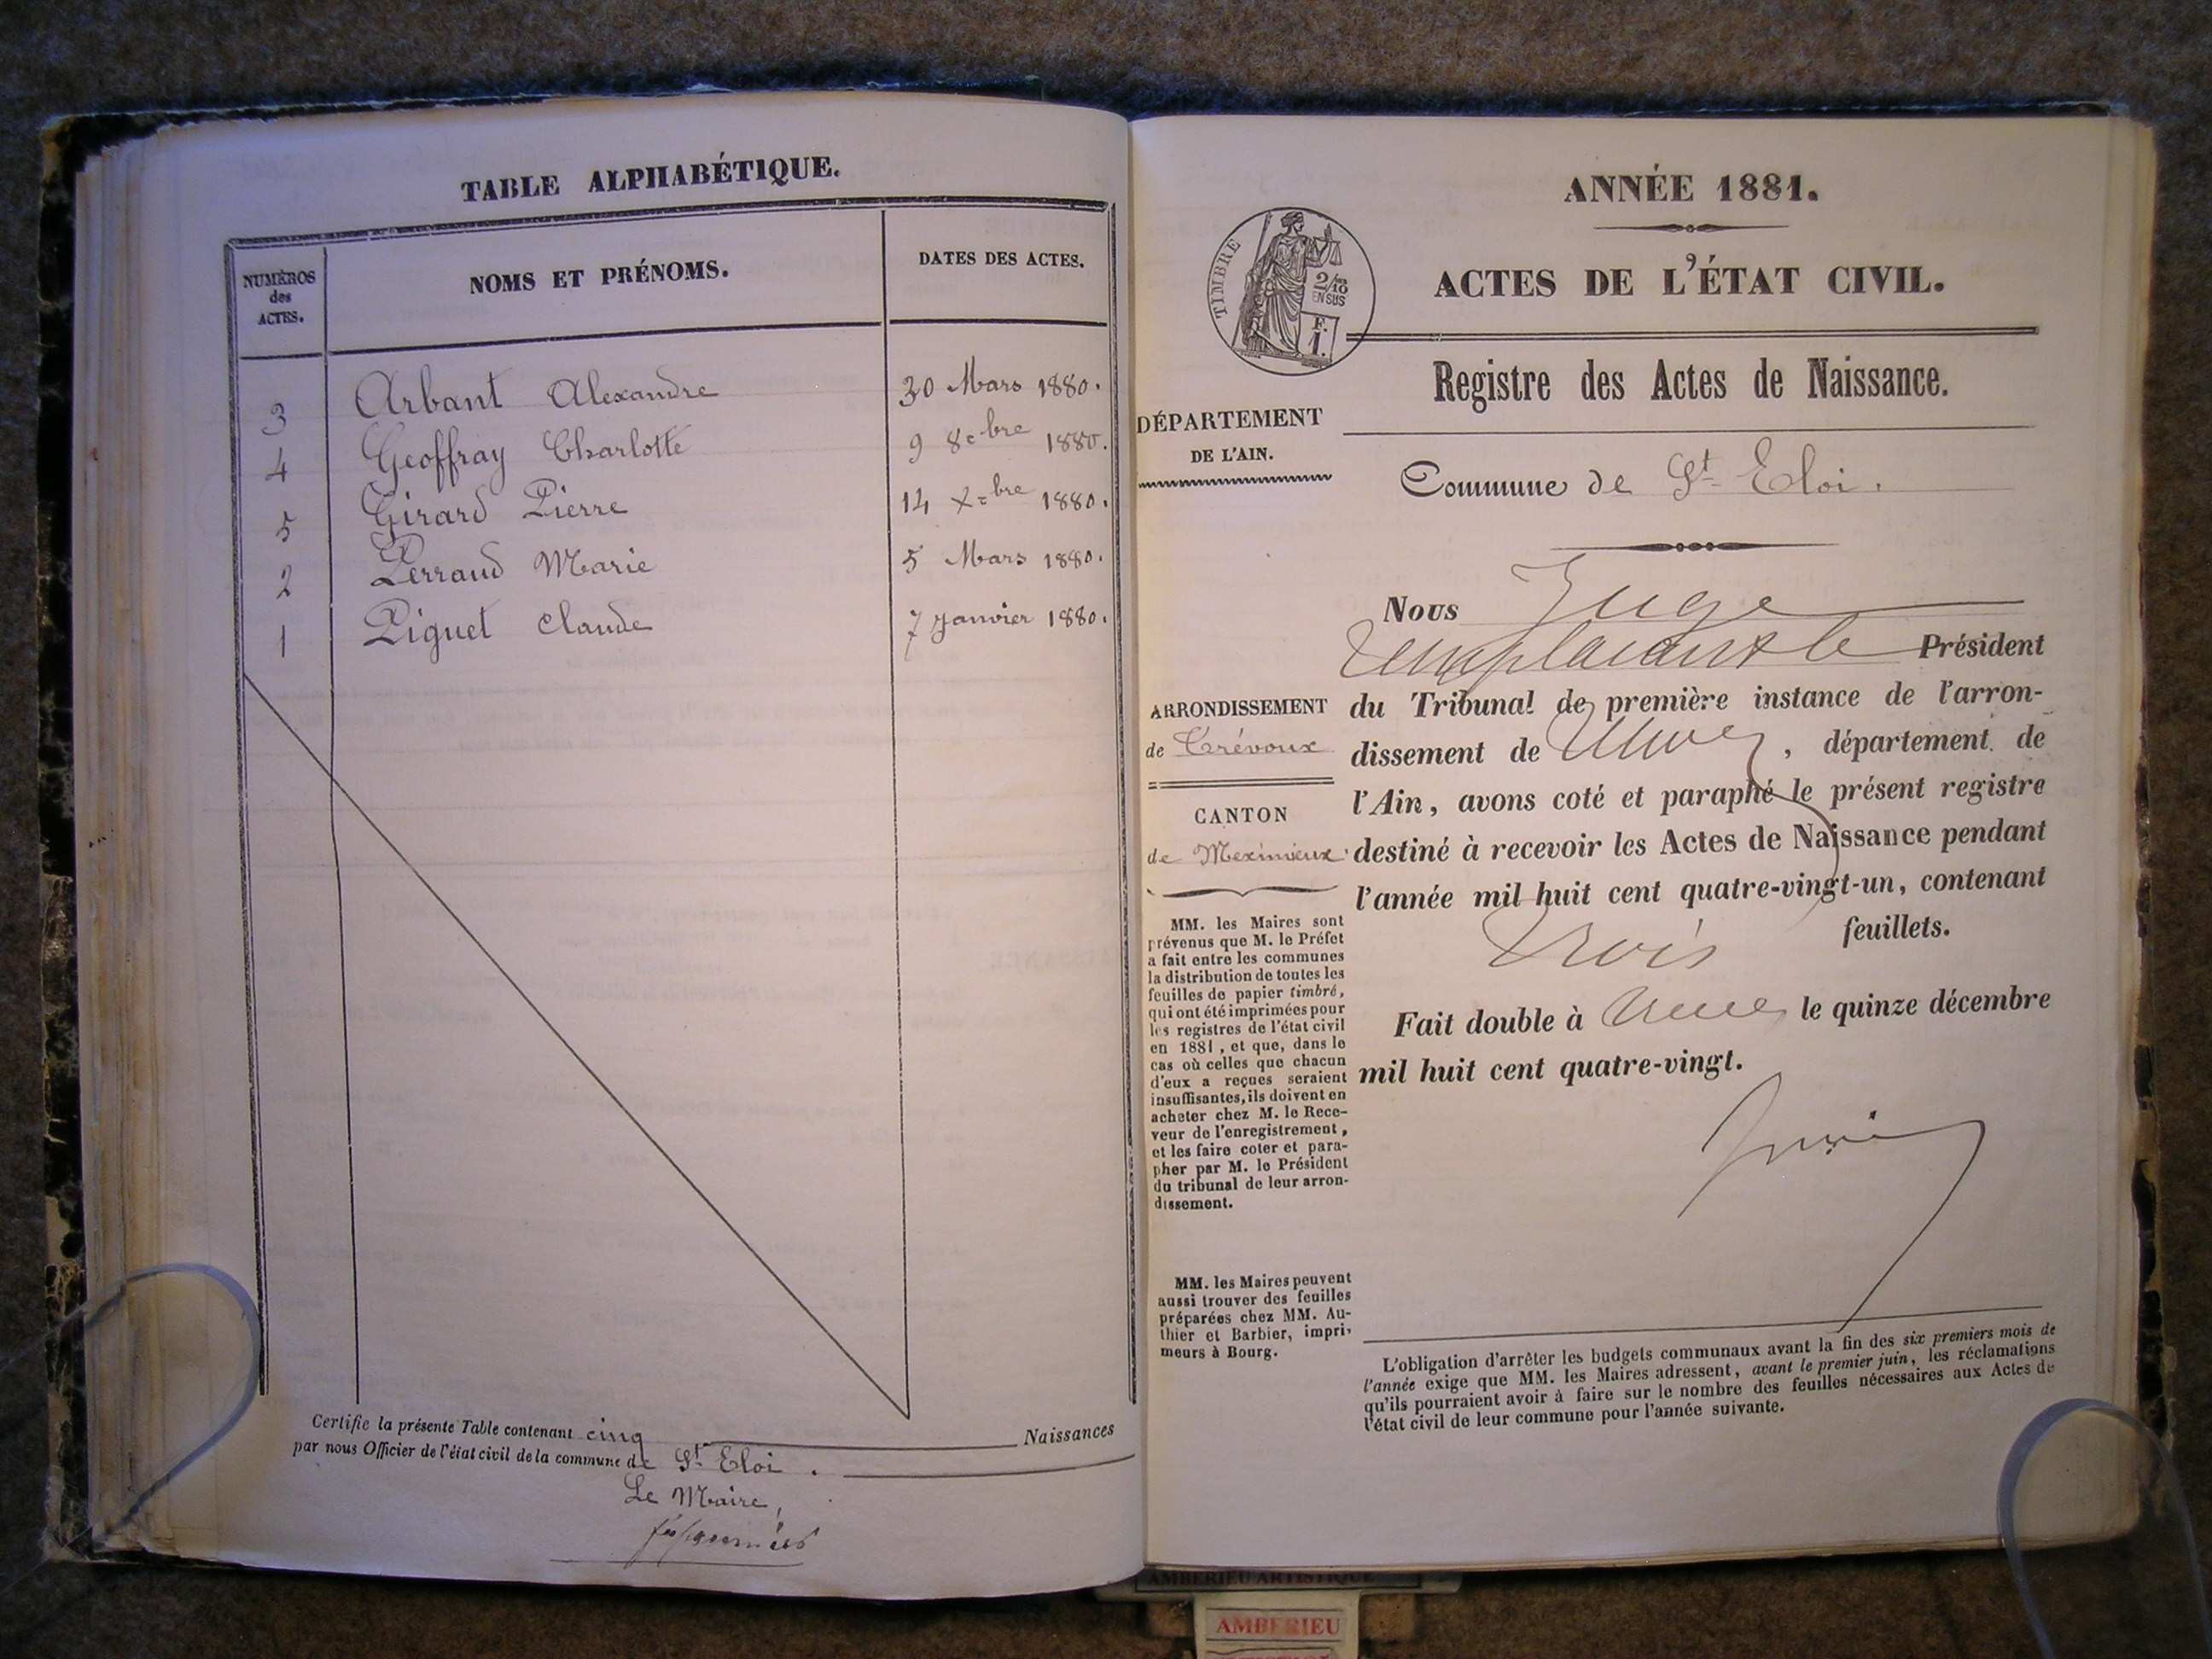 TABLE ALPHABÉTIQUE.
NUMÉROS des ACTES.
NOMS ET PRÉNOMS.
DATES DES ACTES.
3 Arbant Alexandre 30 Mars 1880.
4 Geoffray Charlotte 9 8bre 1880.
5 Girard Pierre 14 Xbre 1880.
2 Perraud Marie 5 Mars 1880.
1 Piguet Claude 7 Janvier 1880.
Certifie la présente Table contenant cinq Naissances
par nous Officier de l'état civil de la commune de St Eloi.
Le Maire,
ANNÉE 1881.
TIMBRE
2/10
EN SUS
F.
1.
ACTES DE L'ÉTAT CIVIL.
Registre des Actes de Naissance.
DÉPARTEMENT
DE L'AIN.
Commune de St Eloi.
ARRONDISSEMENT
de Trévoux
CANTON
de Meximieux
MM. les Maires sont
prévenus que M. le Préfet
a fait entre les communes
la distribution de toutes les
feuilles de papier timbré,
qui ont été imprimées pour
les registres de l'état civil
en 1881, et que, dans le
cas où celles que chacun
d'eux a reçues seraient
insuffisantes, ils doivent en
acheter chez M. le Rece-
veur de l'enregistrement,
et les faire coter et para-
pher par M. le Président
du tribunal de leur arron-
dissement.
MM. les Maires peuvent
aussi trouver des feuilles
préparées chez MM. Au-
thier et Barbier, impri-
meurs à Bourg.
Nous Juge
remplaçant le Président
du Tribunal de première instance de l'arron-
dissement de , département de
l'Ain, avons coté et paraphé le présent registre
destiné à recevoir les Actes de Naissance pendant
l'année mil huit cent quatre-vingt-un, contenant
trois feuillets.
Fait double à le quinze décembre
mil huit cent quatre-vingt.
L'obligation d'arrêter les budgets communaux avant la fin des six premiers mois de
l'année exige que MM. les Maires adressent, avant le premier juin, les réclamations
qu'ils pourraient avoir à faire sur le nombre des feuilles nécessaires aux Actes de
l'état civil de leur commune pour l'année suivante.
AMBERIEU ARTISTIQUE
AMBERIEU